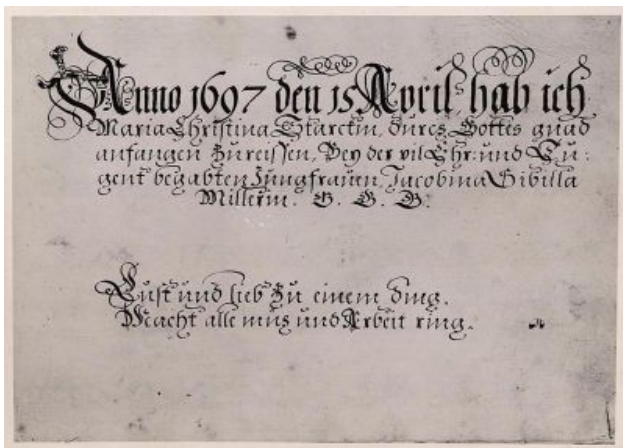 Anno 1697 den 15 April, hab ich
Maria Christina Starckin, durch Gottes gnad
anfangen zu reissen, Bey der vil Ehr: und Tu:
gent begabten Jungfrauen, Jacobina Sibilla
Millerin. G. G. G.
Lust und lieb zu einem ding.
Macht alle müh und Arbeit ring.